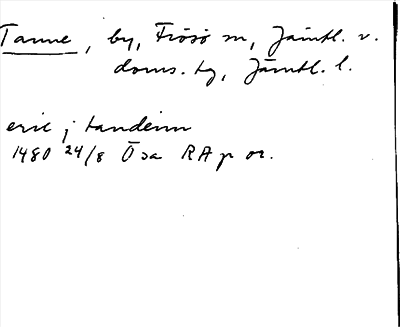 Tanne, by, Frösö sn, Jämtl. v.
doms. tg, Jämtl. l.
eric j tandenn
1480 24/8 Ösa RA p or.